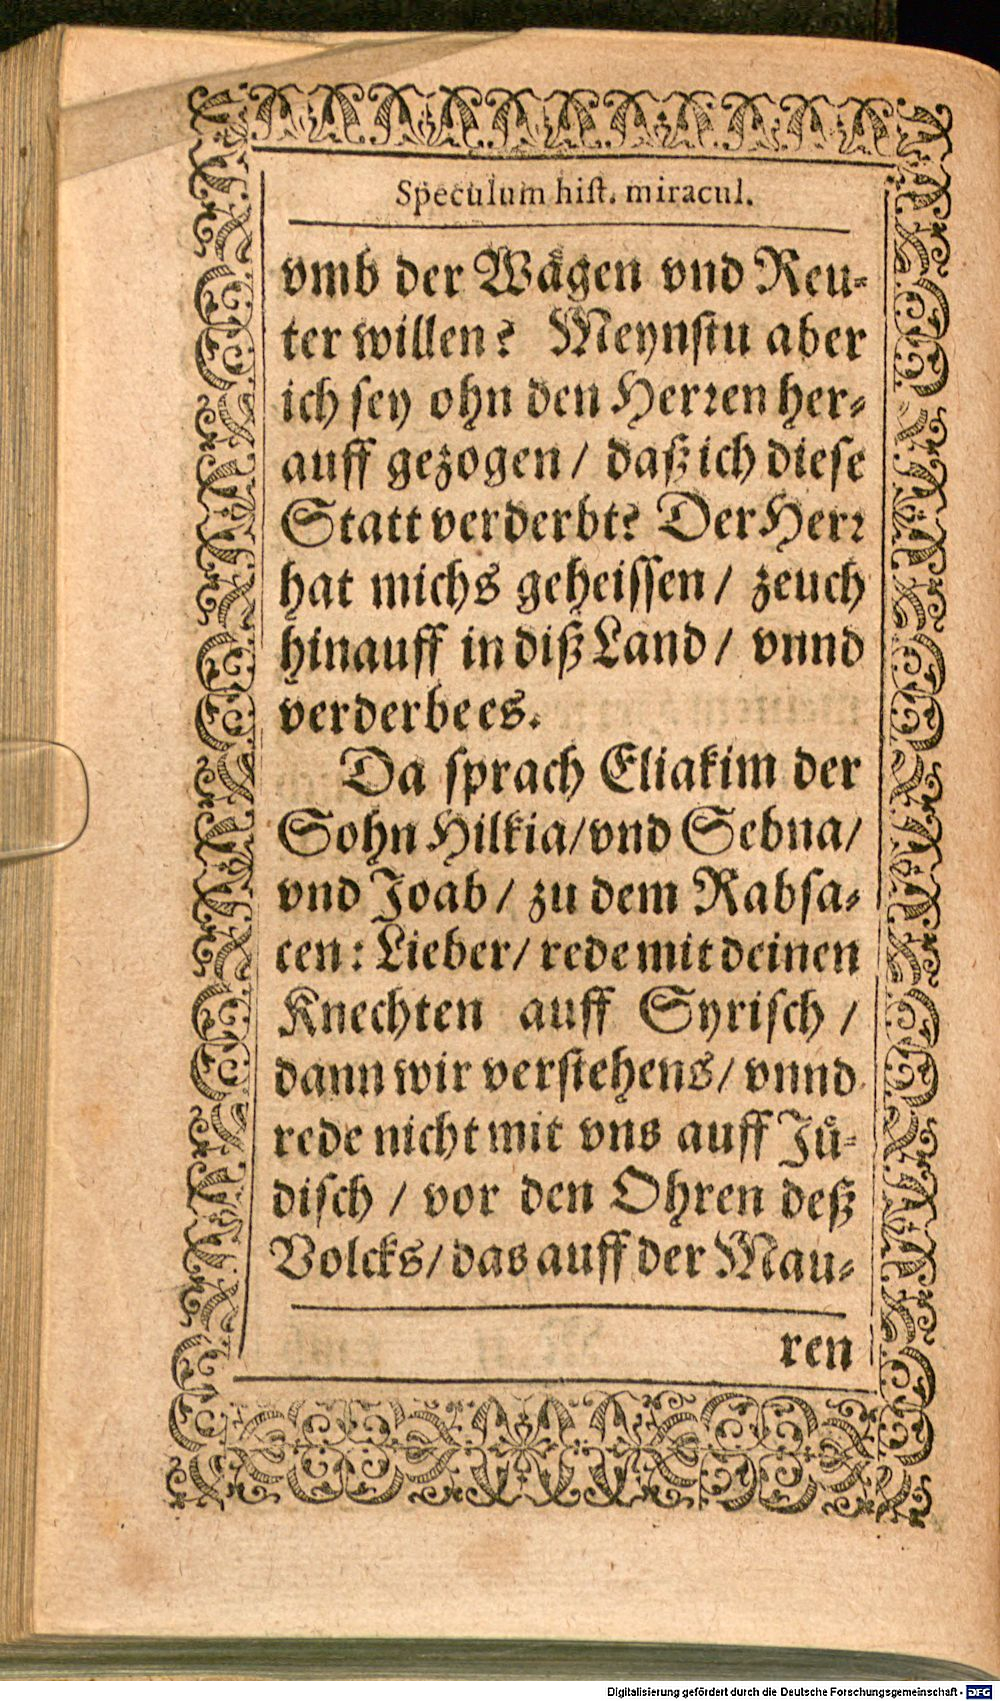 Speculum hiſt. miracul.
vmb der Wägen vnd Reu⸗
ter willen? Meynſtu aber
ich ſey ohn den Herꝛen her⸗
auff gezogen / daß ich dieſe
Statt verderbt? Der Herꝛ
hat michs geheiſſen / zeuch
hinauff in diß Land / vnnd
verderbe es.
Da ſprach Eliakim der
Sohn Hilkia / vnd Sebna /
vnd Joab / zu dem Rabſa⸗
cen: Lieber / rede mit deinen
Knechten auff Syriſch /
dann wir verſtehens / vnnd
rede nicht mit vns auff Juͤ⸗
diſch / vor den Ohren deß
Volcks / das auff der Mau⸗
ren
Digitalisierung gefördert durch die Deutsche Forschungsgemeinschaft - DFG